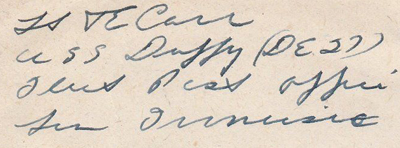 Lt TE Carr
USS Duffy (DE 27)
Fleet Post Office
San Francisco